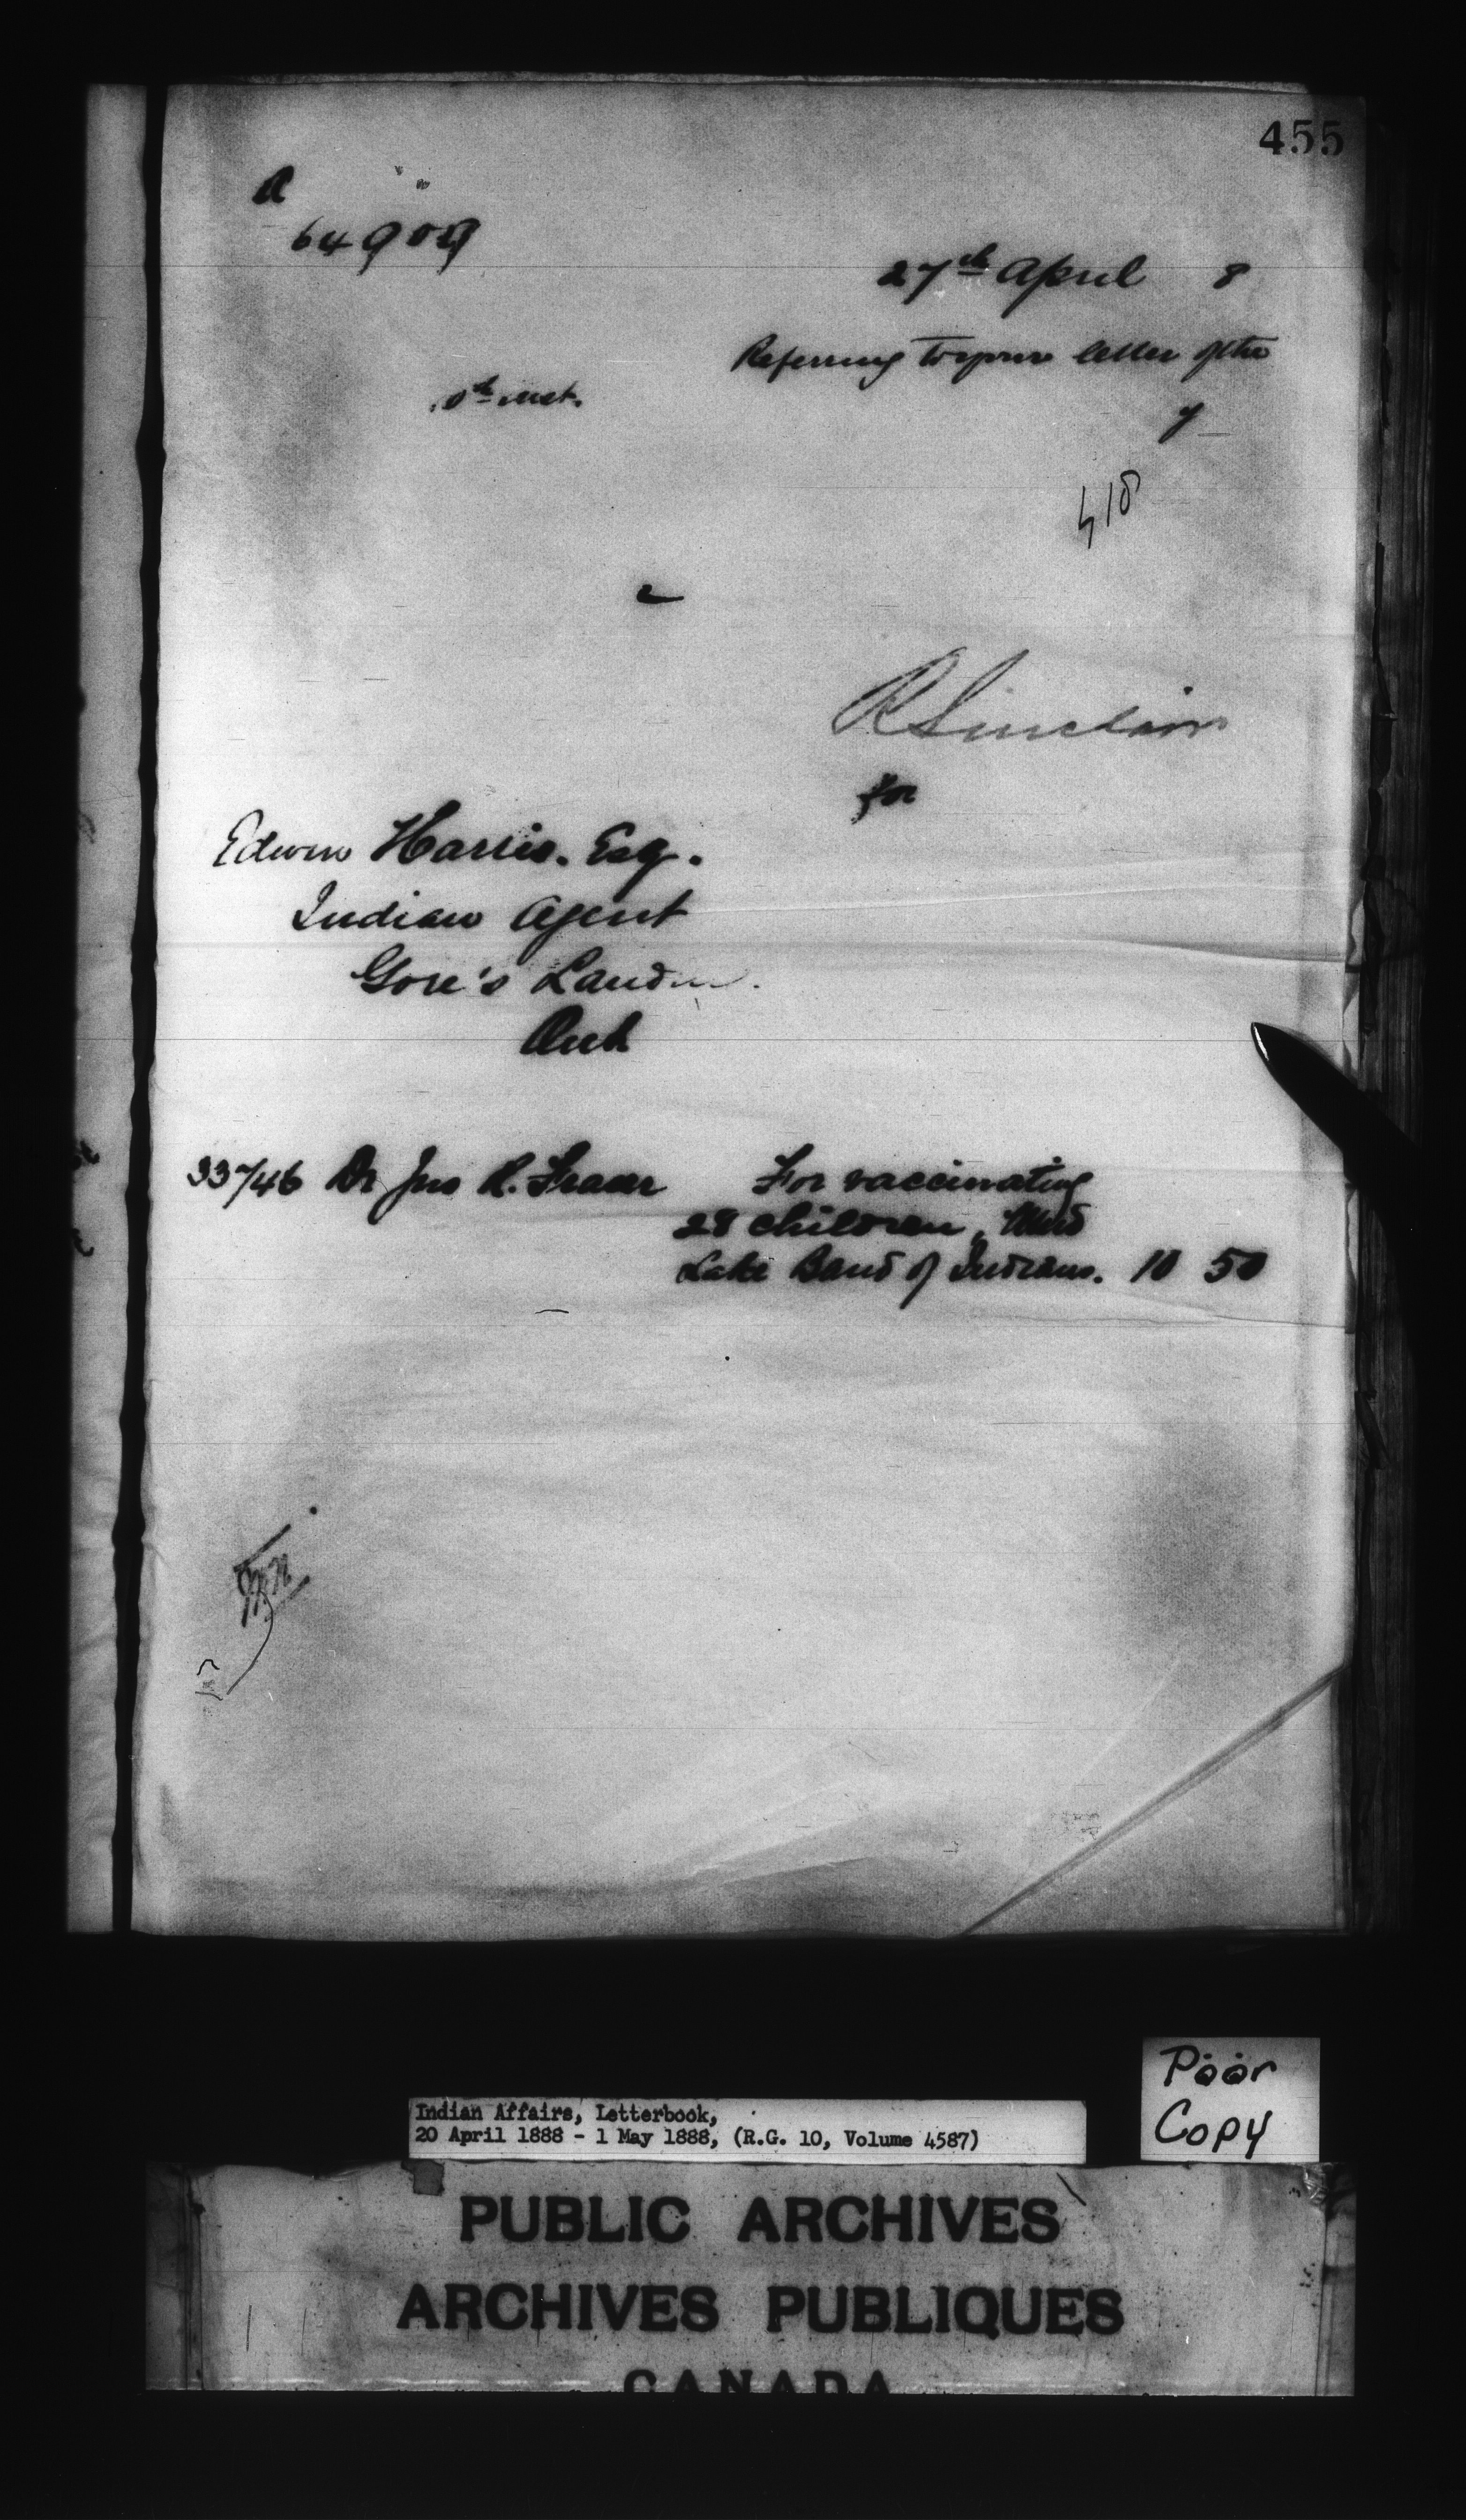 455
A
64909
27th April 8
Referring to your letter of the
10th inst.
y
418
2
R Sinclair
for
Edwin Harris. Esq.
Indian Agent
Gore's Landin
Ont
33746 Dr Jno R. Fraser For vaccinating
28 children, Mud
Lake Band of Indians. 10 50
Poor
Copy
Indian Affairs, Letterbook,
20 April 1888 - 1 May 1888, (R.G. 10, Volume 4587)
PUBLIC ARCHIVES
ARCHIVES PUBLIQUES
CANADA